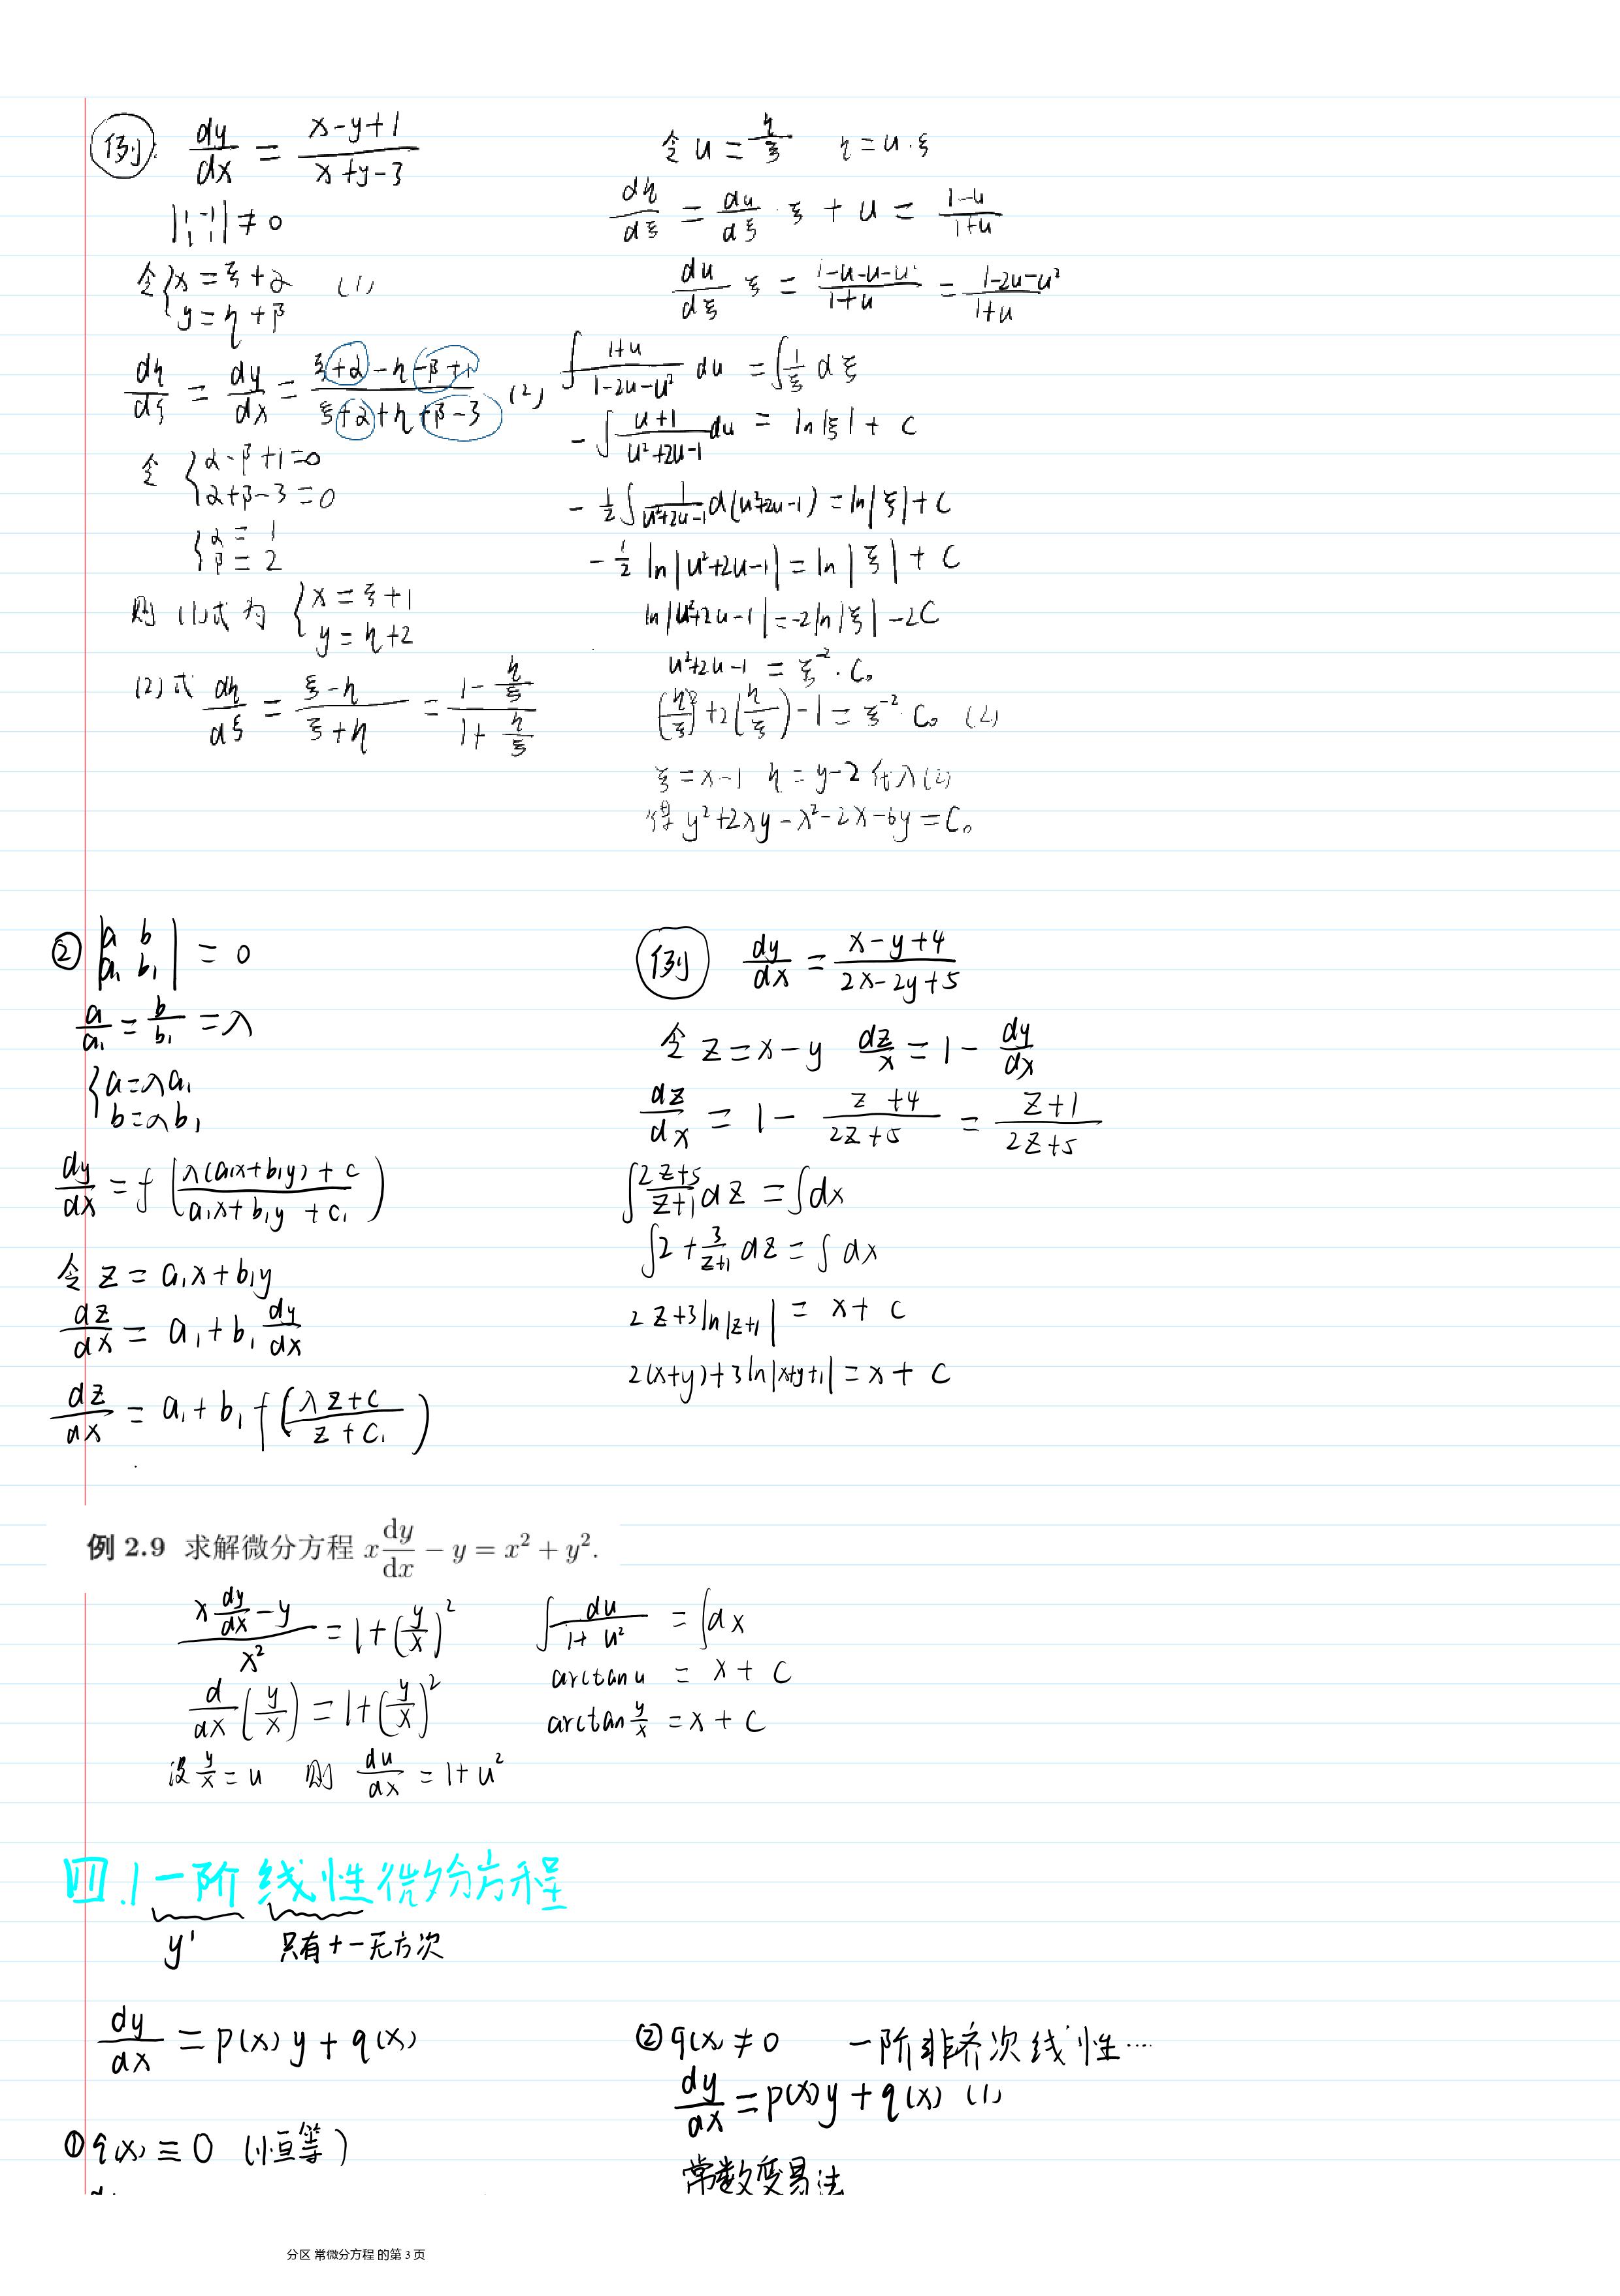 例: dy/dx = (x-y+1)/(x+y-3)
|1 -1; 1 1| ≠ 0
令 {x = ξ+α (1)
y = η+β
dη/dξ = dy/dx = (ξ+α-η-β+1)/(ξ+α+η+β-3) (2)
令 {α-β+1=0
α+β-3=0
{α = 1
β = 2
则 (1)式为 {x = ξ+1
y = η+2
(2)式 dη/dξ = (ξ-η)/(ξ+η) = (1-η/ξ)/(1+η/ξ)
令 u = η/ξ η = u·ξ
dη/dξ = du/dξ · ξ + u = (1-u)/(1+u)
du/dξ ξ = (1-u-u-u²)/(1+u) = (1-2u-u²)/(1+u)
∫ (1+u)/(1-2u-u²) du = ∫ 1/ξ dξ
-∫ (u+1)/(u²+2u-1) du = ln|ξ| + C
-1/2 ∫ 1/(u²+2u-1) d(u²+2u-1) = ln|ξ| + C
-1/2 ln|u²+2u-1| = ln|ξ| + C
ln|u²+2u-1| = -2ln|ξ| -2C
u²+2u-1 = ξ⁻² · C₀
(η/ξ)²+2(η/ξ)-1 = ξ⁻² · C₀ (2)
ξ = x-1 η = y-2 代入(2)
得 y²+2xy-x²-2x-6y = C₀
② |a b; a₁ b₁| = 0
a/a₁ = b/b₁ = λ
{a = λa₁
b = λb₁
dy/dx = f((λ(a₁x+b₁y)+c)/(a₁x+b₁y+c₁))
令 z = a₁x+b₁y
dz/dx = a₁+b₁ dy/dx
dz/dx = a₁+b₁ f((λz+c)/(z+c₁))
例 dy/dx = (x-y+4)/(2x-2y+5)
令 z = x-y dz/x = 1 - dy/dx
dz/dx = 1 - (z+4)/(2z+5) = (z+1)/(2z+5)
∫ (2z+5)/(z+1) dz = ∫dx
∫ 2 + 3/(z+1) dz = ∫ dx
2z+3ln|z+1| = x+c
2(x+y)+3ln|x+y+1| = x+c
例 2.9 求解微分方程 x dy/dx - y = x² + y².
(x dy/dx - y)/x² = 1+(y/x)²
d/dx (y/x) = 1+(y/x)²
设 y/x = u 则 du/dx = 1+u²
∫ du/(1+u²) = ∫dx
arctan u = x + C
arctan y/x = x + C
四.1 一阶线性微分方程
y' 只有+-无方次
dy/dx = p(x)y + q(x)
① q(x) ≡ 0 (恒等)
② q(x) ≠ 0 一阶非齐次线性…
dy/dx = p(x)y + q(x) (1)
常数变易法
分区 常微分方程 的第 3 页